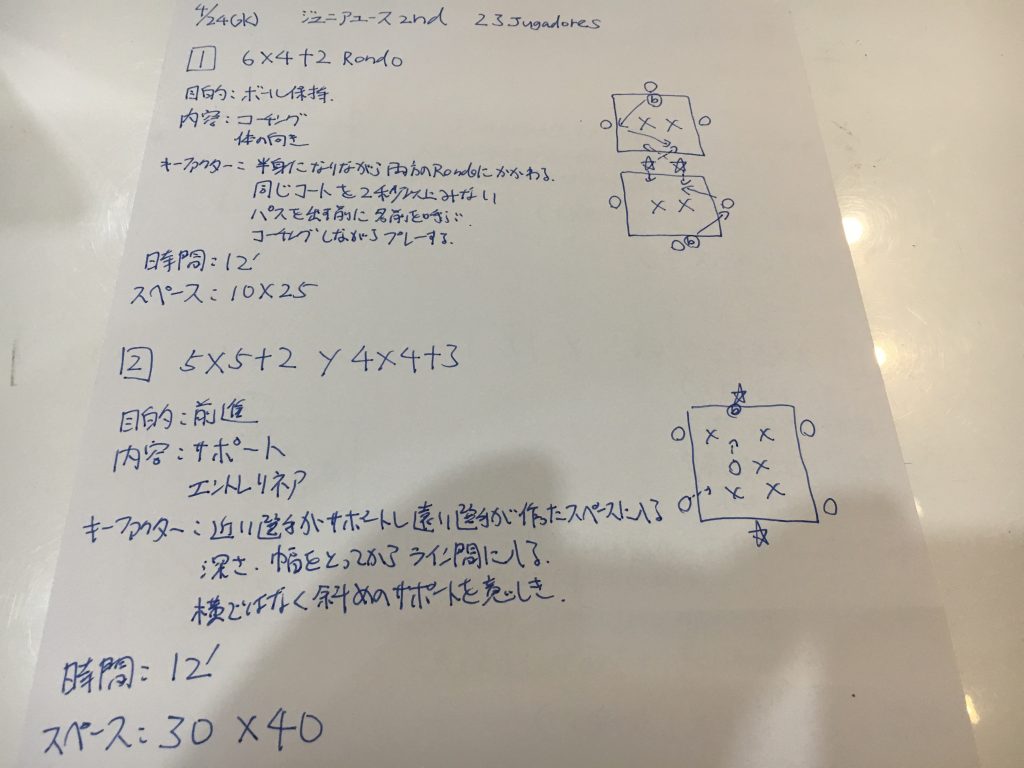 4/24(水) ジュニアユース2nd 23 Jugadores
1 6×4+2 Rondo
目的：ボール保持.
内容：コーチング
体の向き
キーファクター：半身になりながら両方のRondoにかかわる.
同じコートを2秒以上みない
パスを出す前に名前を呼ぶ
コーチングしながらプレーする.
時間：12'
スペース：10×25
2 5×5+2 y 4×4+3
目的：前進
内容：サポート
エントレリネア
キーファクター：近い選手がサポートし遠い選手が作ったスペースに入る
深さ.幅をとってから ライン間に入る.
横ではなく斜めのサポートを意しき.
時間：12'
スペース：30×40